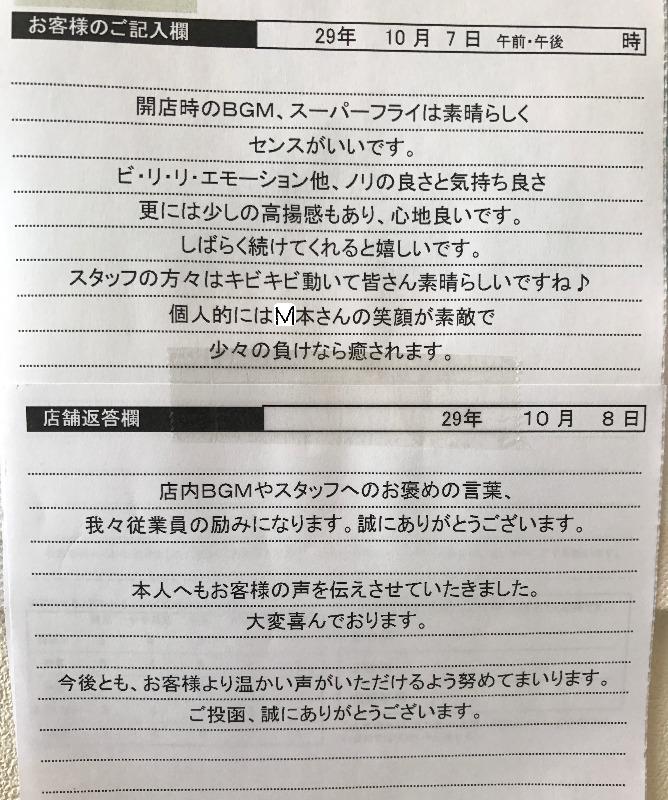 お客様のご記入欄 29年 10月 7日 午前・午後 時
開店時のBGM、スーパーフライは素晴らしく
センスがいいです。
ビ・リ・リ・エモーション他、ノリの良さと気持ち良さ
更には少しの高揚感もあり、心地良いです。
しばらく続けてくれると嬉しいです。
スタッフの方々はキビキビ動いて皆さん素晴らしいですね♪
個人的にはM本さんの笑顔が素敵で
少々の負けなら癒されます。
店舗返答欄 29年 10月 8日
店内BGMやスタッフへのお褒めの言葉、
我々従業員の励みになります。誠にありがとうございます。
本人へもお客様の声を伝えさせていたきました。
大変喜んでおります。
今後とも、お客様より温かい声がいただけるよう努めてまいります。
ご投函、誠にありがとうございます。